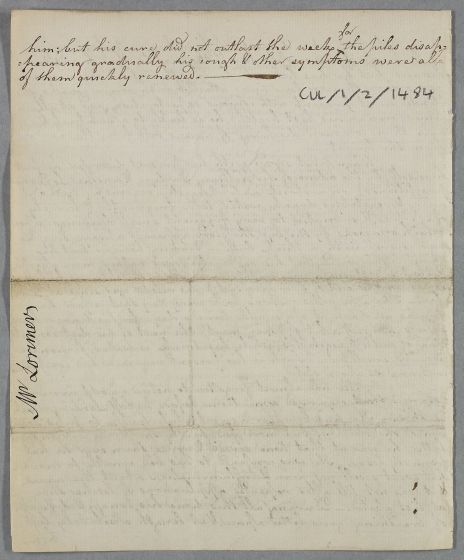 for
him; but his cure did not outlast the week, the piles disap=
=pearing gradually his cough & other symptoms were al=
of them quickly renewed.
CUL/1/2/1484
Mr Lorimer